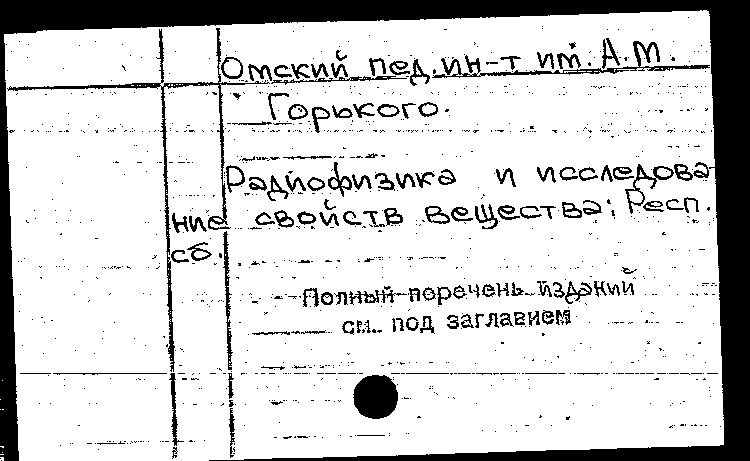 Омский пед.ин-т им. А.М.
Горького.
Радиофизика и исследова
ние свойств вещества: Респ.
сб.
Полный перечень изданий
см. под заглавием